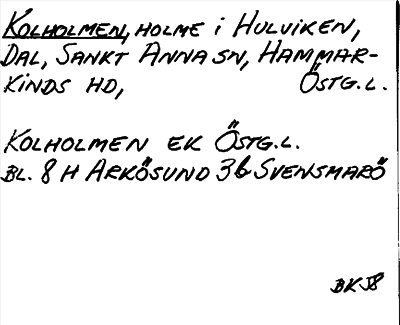 KOLHOLMEN, HOLME i HULVIKEN,
DAL, SANKT ANNA SN, HAMMAR-
KINDS HD, ÖSTG.L.
KOLHOLMEN EK ÖSTG.L.
BL. 8 H ARKÖSUND 3b SVENSMARÖ
BKJ8